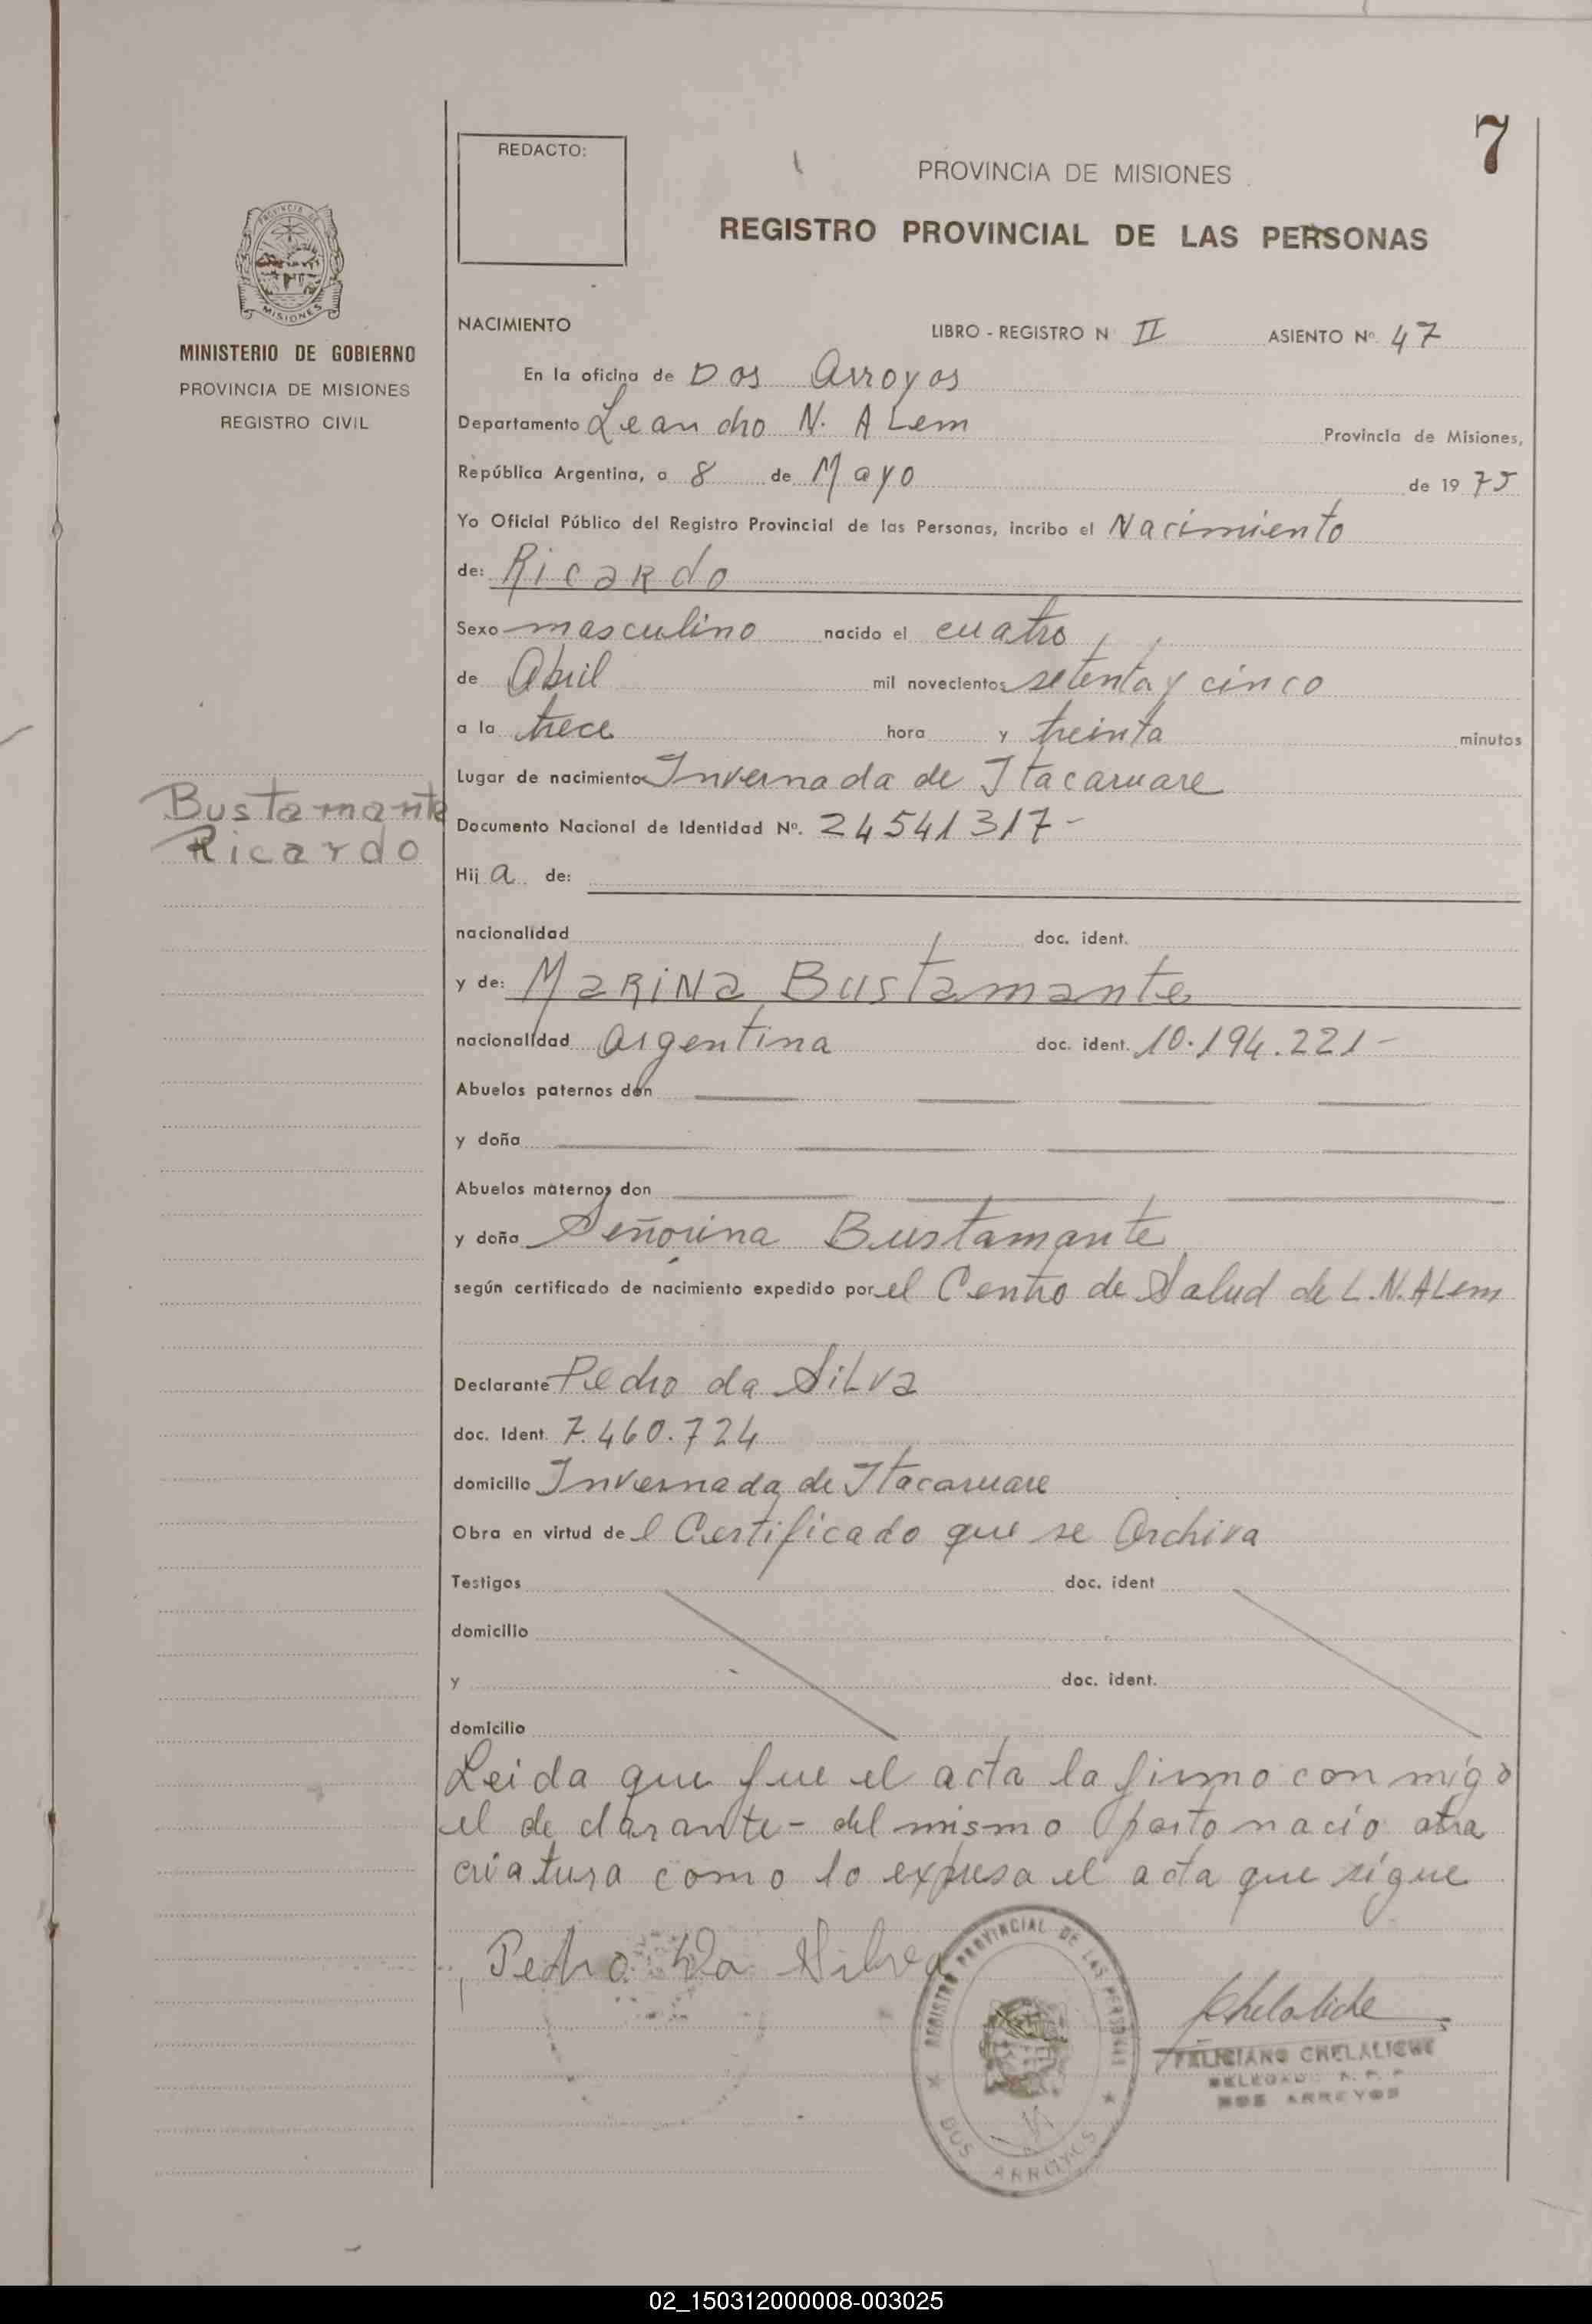 7
REDACTO:
PROVINCIA DE MISIONES
REGISTRO PROVINCIAL DE LAS PERSONAS
PROVINCIA DE
MISIONES
MINISTERIO DE GOBIERNO
PROVINCIA DE MISIONES
REGISTRO CIVIL
NACIMIENTO LIBRO - REGISTRO N II ASIENTO Nº. 47
En la oficina de Dos Arroyos
Departamento Leandro N. ALem Provincia de Misiones,
República Argentina, a 8 de Mayo de 1975
Yo Oficial Público del Registro Provincial de las Personas, incribo el Nacimiento
de: Ricardo
Sexo masculino nacido el cuatro
de Abril mil novecientos setenta y cinco
a la trece hora y treinta minutos
Lugar de nacimiento Invernada de Itacaruare
Bustamante
Ricardo
Documento Nacional de Identidad Nº. 24541317-
Hij a de:
nacionalidad doc. ident.
y de: Marina Bustamante
nacionalidad Argentina doc. ident. 10.194.221-
Abuelos paternos don
y doña
Abuelos maternos don
y doña Señorina Bustamante
según certificado de nacimiento expedido por el Centro de Salud de L.N.ALem
Declarante Pedro da Silva
doc. Ident. 7.460.724
domicilio Invernada de Itacaruare
Obra en virtud de l Certificado que se Archiva
Testigos doc. ident
domicilio
y doc. ident.
domicilio
Leida que fue el acta la firmo con migo
el declarante - del mismo parto nacio otra
criatura como lo expresa el acta que sigue
Pedro Da Silva
REGISTRO PROVINCIAL DE LAS PERSONAS
DOS ARROYOS
Chelaliche
FELICIANO CHELALICHE
DELEGADO R. P. P.
DOS ARROYOS
02_150312000008-003025